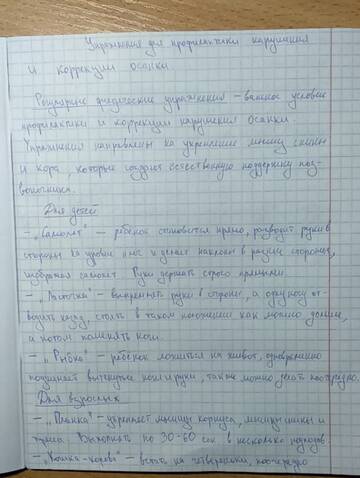 Упражнения для профилактики нарушения
и коррекции осанки
Регулярные физические упражнения – важное условие
профилактики и коррекции нарушения осанки.
Упражнения направлены на укрепление мышц спины
и кора, которые создают естественную поддержку поз-
воночника.
Для детей
– „Самолет" – ребёнок становится прямо, разводит руки в
стороны на уровне плеч и делает наклоны в разные стороны,
изображая самолет. Руки держать строго прямыми.
– „Ласточка" – выпрямить руки в стороны, а одну ногу от
водить назад, стоять в таком положении как можно дольше,
а потом поменять ноги.
– „Рыбка" – ребенок ложится на живот, одновременно
поднимает вытянутые ноги и руки, также можно делать поочередно.
Для взрослых
– „Планка" – укрепляет мышцы корпуса, мышцы спины и
пресса. Выполнять по 30-60 сек в несколько подходов
– „Кошка-корова" – встать на четвереньки, поочередно